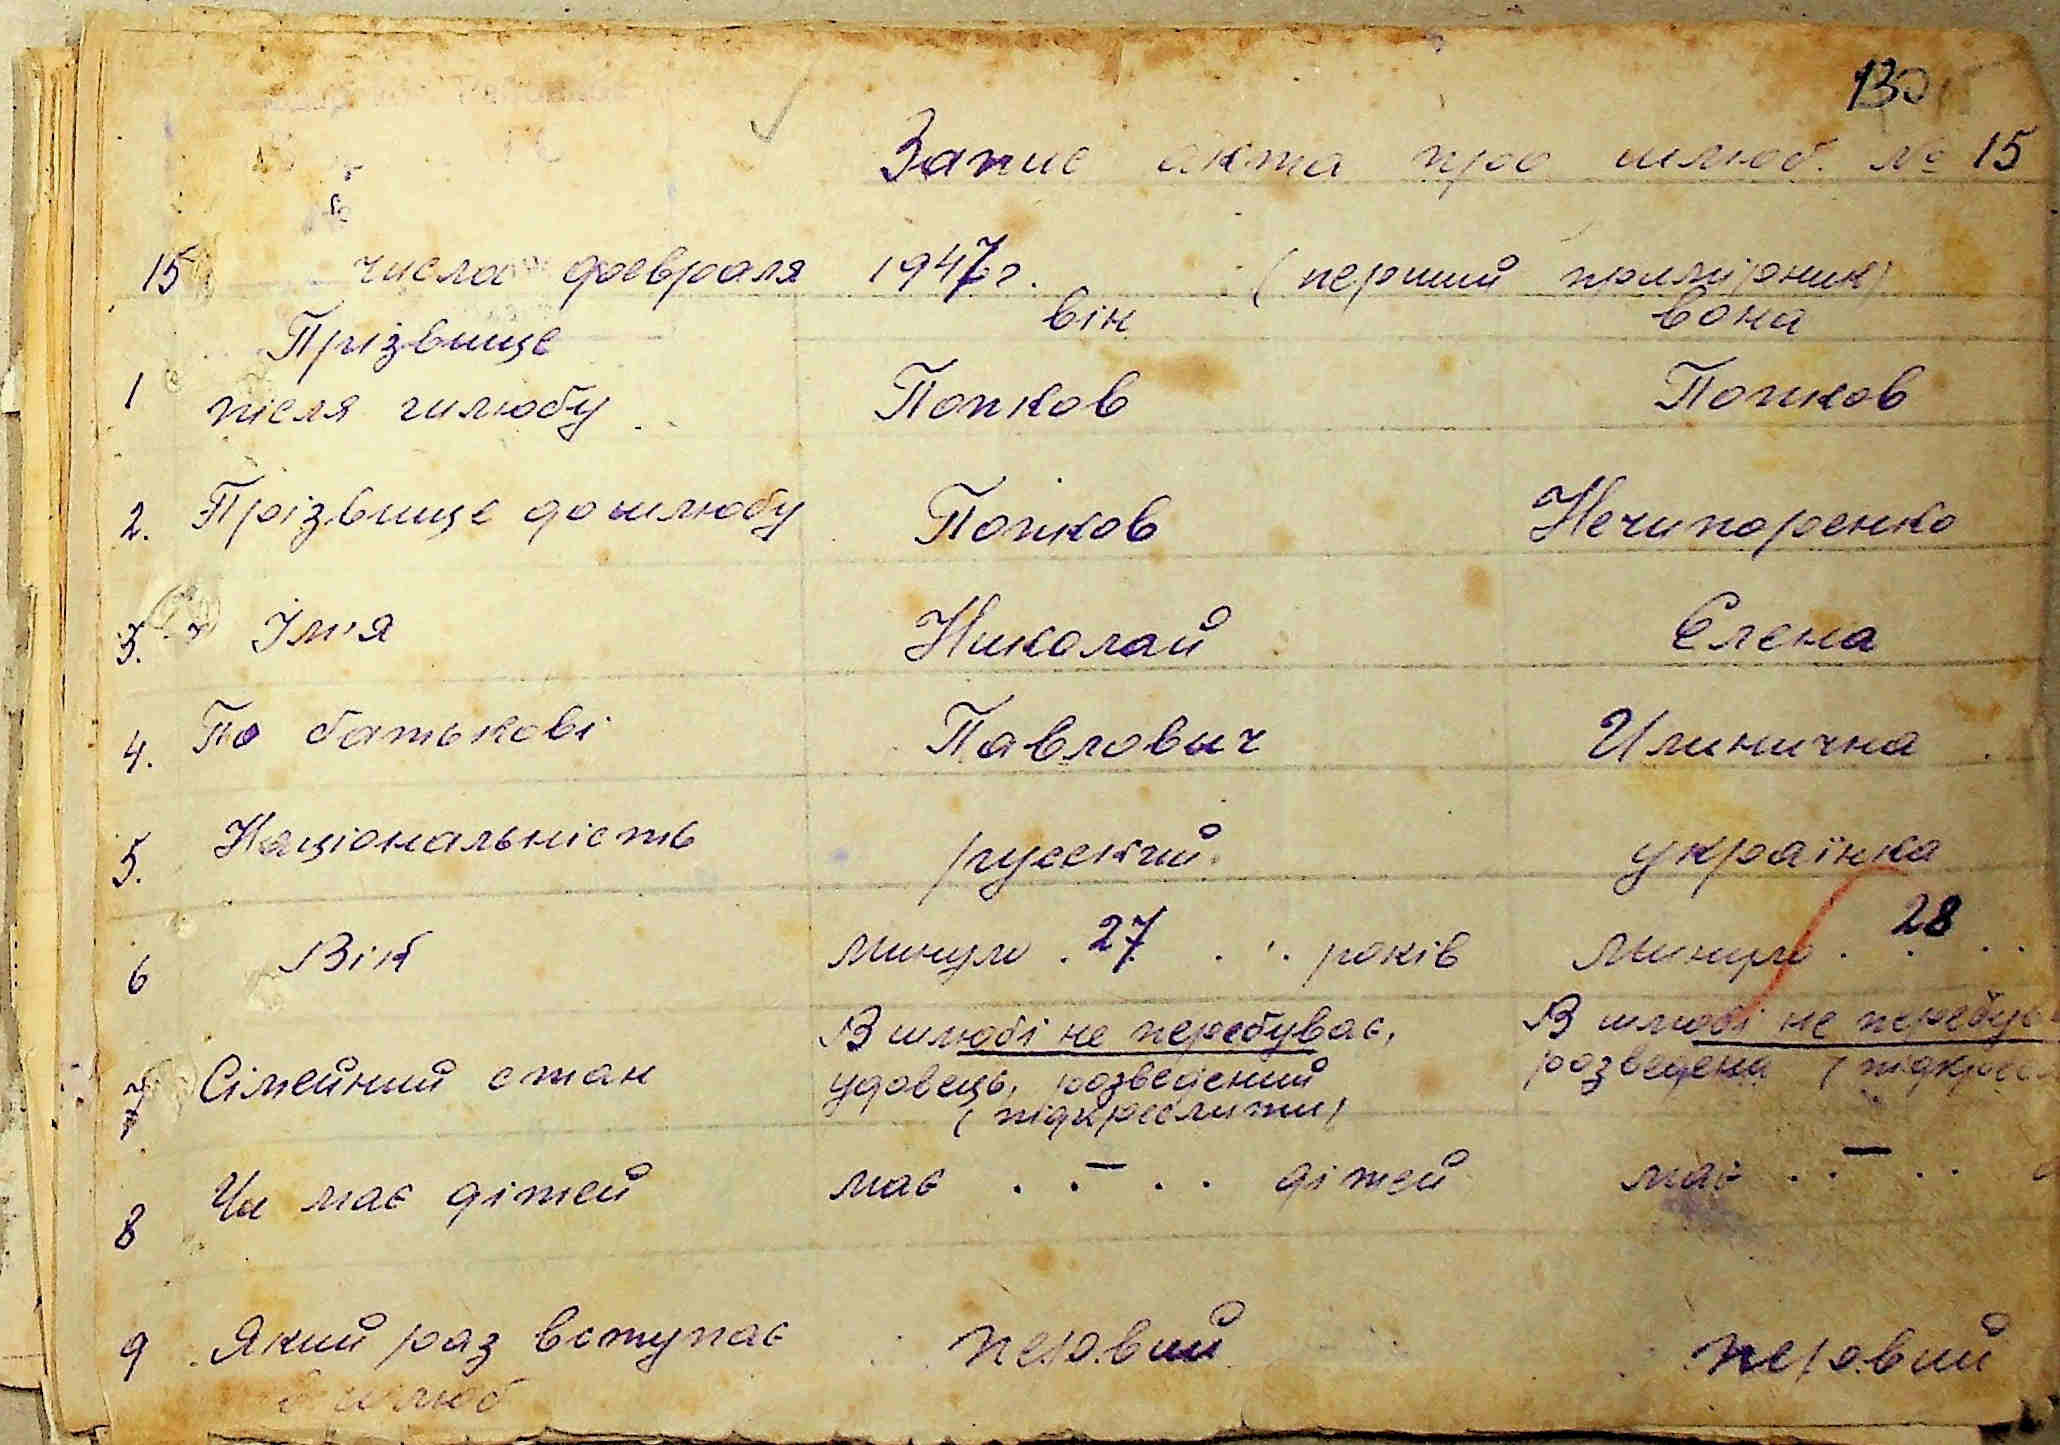 130
Запис акта про шлюб. № 15
15 числа февраля 1947 г. (перший примірник)
він вона
Прізвище
1 після шлюбу Попков Попков
2. Прізвище до шлюбу Попков Нечипоренко
3. Ім'я Николай Елена
4. По батькові Павлович Илинична
5. Національність русский українка
6 Вік минуло . 27 . . . років минуло . 28 . .
В шлюбі не перебуває, В шлюбі не перебува
7 Сімейний стан удовець, розведений розведена (підкресл
(підкреслити)
8 Чи має дітей має . . – . . дітей має . . – . .
9 Який раз вступає первий первий
в шлюб